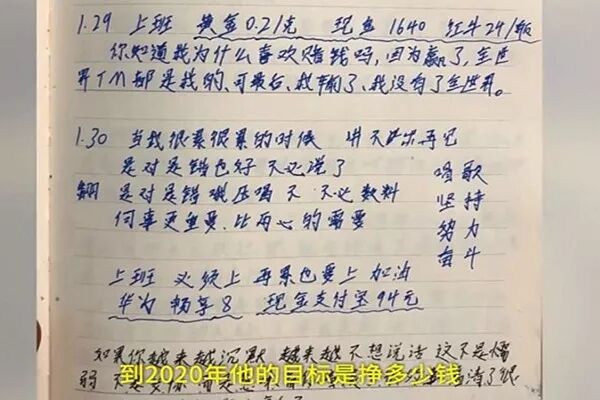 1.29 上班 黄金0.21克 现金1640 红牛24/瓶
你知道我为什么喜欢赌钱吗,因为赢了,全世
界TM都是我的、可最后、我输了、我没有了全世界。
1.30 当我很累很累的时候 再见
是对是错也好 不必说了
是对是错 不 不必
何事更重要、比两心的需要
唱歌
坚持
努力
奋斗
上班 必须上 再累也要上 加油
华为 畅享8 现金支付宝94元
如果你越来越沉默 越来越不想说话 这不是懦
弱
到2020年他的目标是挣多少钱